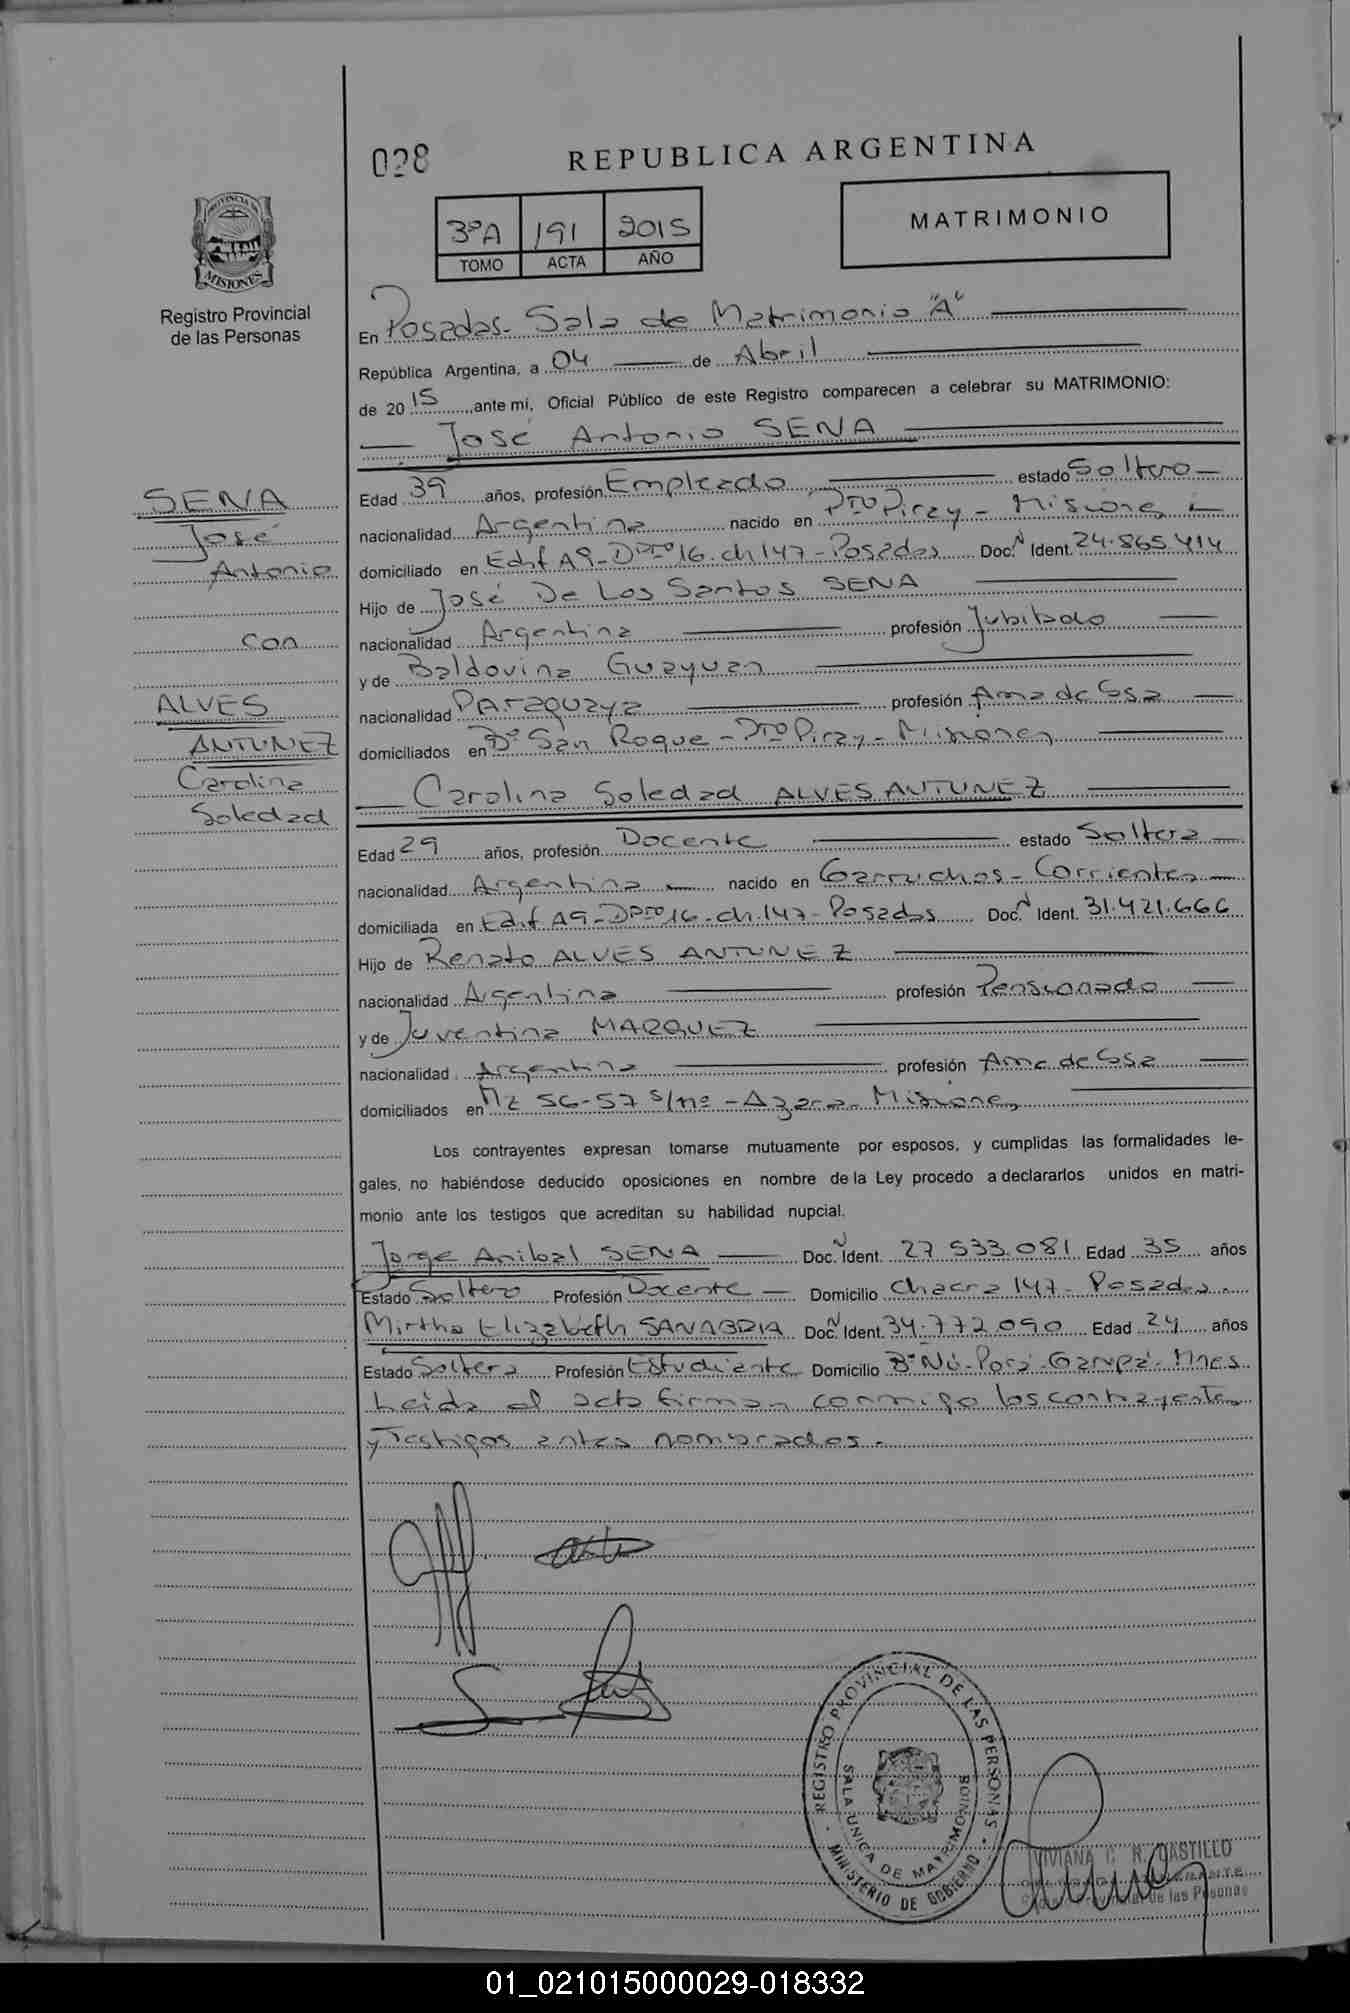 028
REPUBLICA ARGENTINA
PROVINCIA DE
MISIONES
Registro Provincial
de las Personas
3ºA 191 2015
TOMO ACTA AÑO
MATRIMONIO
En Posadas- Sala de Matrimonio "A"
República Argentina, a 04 de Abril
de 2015, ante mi, Oficial Público de este Registro comparecen a celebrar su MATRIMONIO:
José Antonio SENA
SENA
José
Antonio
con
ALVES
ANTUNEZ
Carolina
Soledad
Edad 39 años, profesión Empleado estado Soltero
nacionalidad Argentina nacido en Pto Piray - Misiones
domiciliado en Edif A9-Dpto 16. ch 147 - Posadas Doc. N Ident. 24.865.414
Hijo de José De Los Santos SENA
nacionalidad Argentina profesión Jubilado
y de Baldovina Guayuan
nacionalidad Paraguaya profesión Ama de Casa
domiciliados en Bº San Roque - Pto Piray - Misiones
Carolina Soledad ALVES ANTUNEZ
Edad 29 años, profesión Docente estado Soltera
nacionalidad Argentina nacido en Garruchos - Corrientes
domiciliada en Edif A9-Dpto 16-ch.147-Posadas Doc. N Ident. 31.421.666
Hijo de Renato ALVES ANTUNEZ
nacionalidad Argentina profesión Pensionado
y de Juventina MARQUEZ
nacionalidad Argentina profesión Ama de Casa
domiciliados en Mz 56-57 s/nº - Azara- Misiones
Los contrayentes expresan tomarse mutuamente por esposos, y cumplidas las formalidades le-
gales, no habiéndose deducido oposiciones en nombre de la Ley procedo a declararlos unidos en matri-
monio ante los testigos que acreditan su habilidad nupcial.
Jorge Anibal SENA Doc. N Ident. 27.533.081 Edad 35 años
Estado Soltero Profesión Docente Domicilio Chacra 147- Posadas.
Mirtha Elizabeth SANABRIA Doc. N Ident. 34.772.090 Edad 24 años
Estado Soltera Profesión Estudiante Domicilio Bº Ñú-Porá-Garupá-Mnes.
Leída el acta firman conmigo los contrayentes
y Testigos antes nombrados.
REGISTRO PROVINCIAL DE LAS PERSONAS
SALA UNICA DE MATRIMONIOS
MINISTERIO DE GOBIERNO
VIVIANA C. R. CASTILLO
de las Personas
01_021015000029-018332